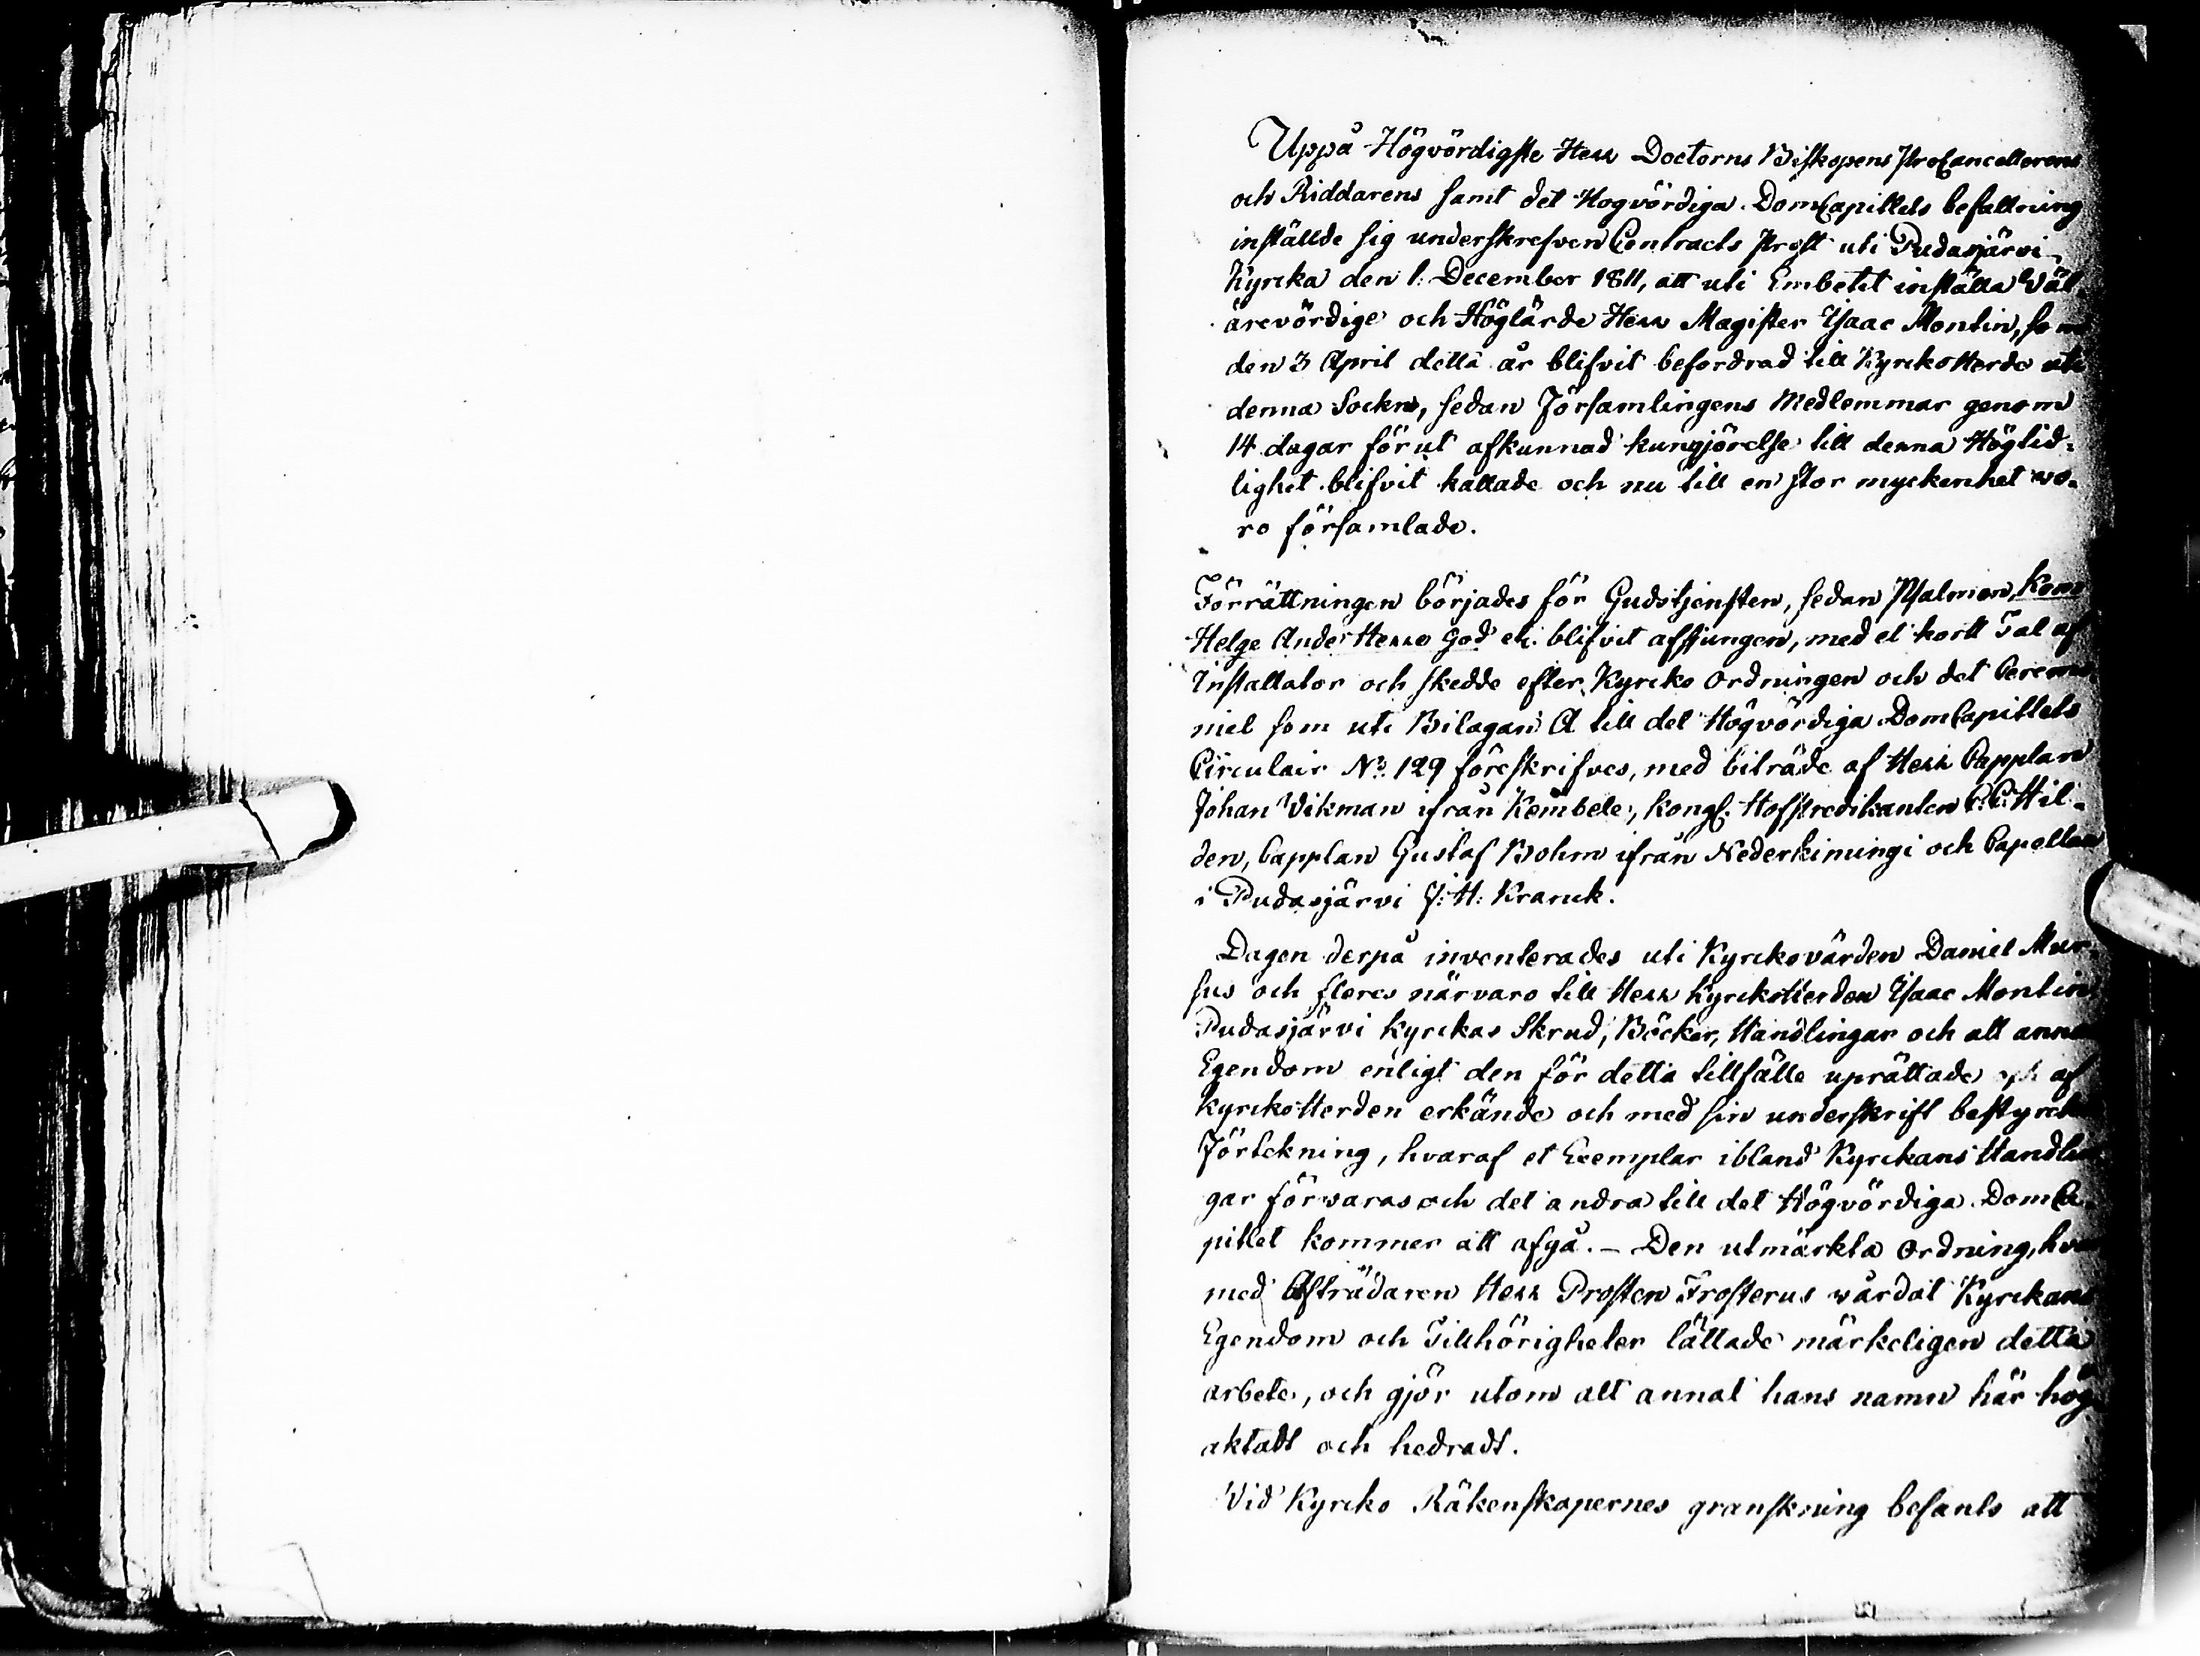 Uppå Högvördigste Herr Doctorns Biskopens ProCancellerens
och Riddarens samt det Högvördiga DomCapitlets befallning
inställde sig underskrefven Contracts Prost uti Pudasjärvi
Kyrcka den 1. December 1811, att uti Embetet inställa Väl-
ärevördige och Höglärde Herr Magister Isaac Montin, som
den 3 April detta år blifvit befordrad till Kyrckoherde uti
denna Sockn, sedan Församlingens Medlemmar genom
14 dagar förut afkunnad kungjörelse till denna Högtid-
lighet blifvit kallade och nu till en stor myckenhet wo-
ro församlade.
Förrättningen börjades för Gudstjensten, sedan Psalmen, Kom
Helge Ande Herre God etc. blifvit afsjungen, med et kort Tal af
Installator och skedde efter Kyrcko Ordningen och det Ceremo-
niel som uti Bilagan A till det Högvördiga DomCapitlets
Circulair No. 129 föreskrifves, med biträde af Herr Capplan
Johan Vikman ifrån Kembele, Kongl. HofPredikanten C: C: Hil-
den, Capplan Gustaf Bohm ifrån Nederkimingi och Capellan
i Pudasjärvi J: H: Kranck.
Dagen derpå inventerades uti Kyrckovärden Daniel Mur-
sus och fleres närvaro till Herr Kyrckoherden Isaac Montin
Pudasjärvi Kyrckas Skrud, Böcker, Handlingar och alt annan
Egendom enligt den för detta tillfälle uprättade och af
Kyrckoherden erkände och med sin underskrift bestyrckte
Förtekning, hvaraf et Exemplar ibland Kyrckans Handlin
gar förvaras och det andra till det Högvördiga DomCa-
pitlet kommer att afgå. – Den utmärkta Ordning, hvar
med Afträdaren Herr Prosten Frosterus vårdat Kyrckans
Egendom och Tillhörigheter lättade märkeligen detta
arbete, och gjör utom alt annat hans namn här hög
aktadt och hedradt.
Vid Kyrcko Räkenskapernes granskning befants att